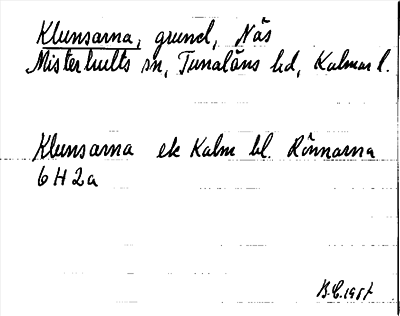 Klunsarna, grund, Näs
Misterhults sn, Tunaläns hd, Kalmar l.
Klunsarna ek Kalm bl. Rönnarna
6 H 2a
B.E. 1957